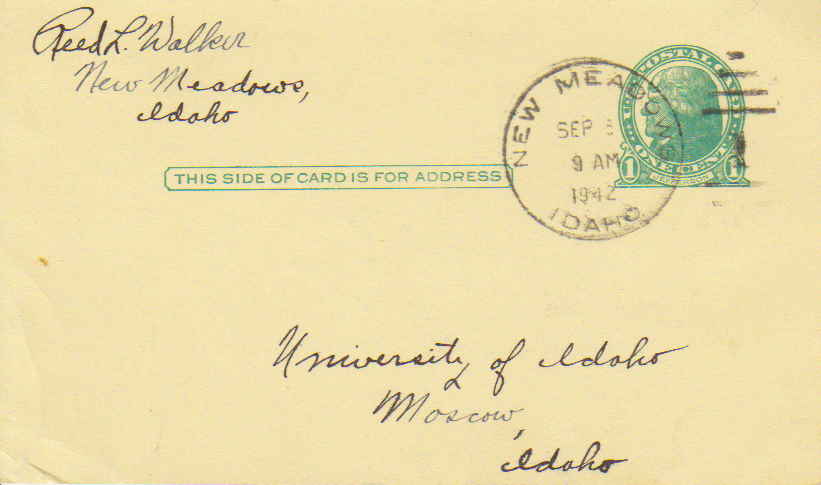 Reed L. Walker
New Meadows,
Idaho
NEW MEADOWS
SEP
9 AM
1942
IDAHO
U.S. POSTAL CARD
1 ONE CENT 1
JEFFERSON
THIS SIDE OF CARD IS FOR ADDRESS
University of Idaho
Moscow,
Idaho